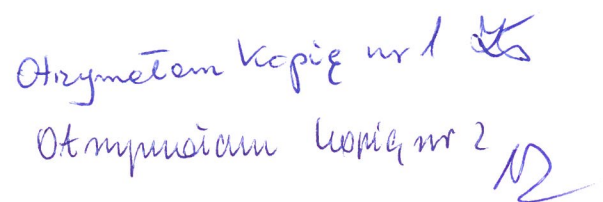 Otrzymałam kopię nr 1
Otrzymałam kopię nr 2